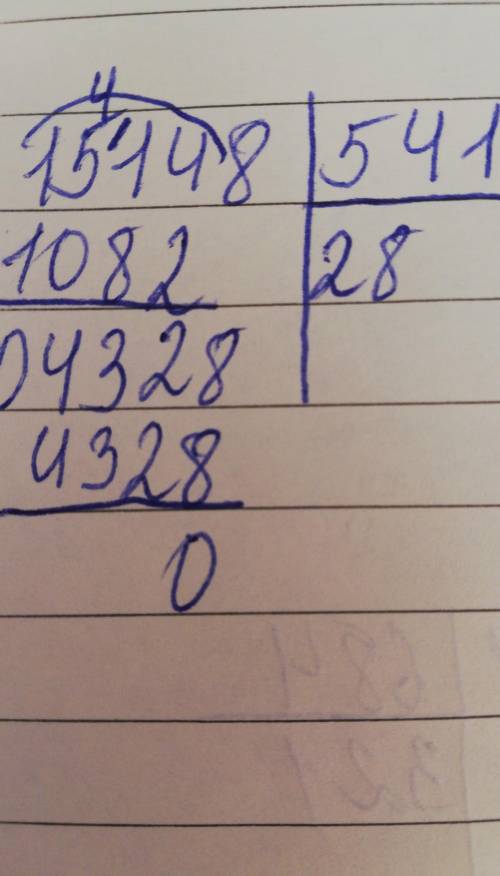 4
15148 541
1082 28
04328
4328
0